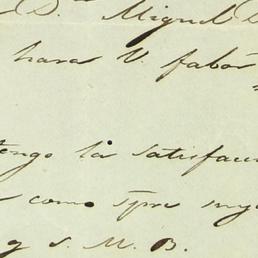 D. Miguel
hara V. fabor
tengo la satisfacc
como spre
q s. M. B.